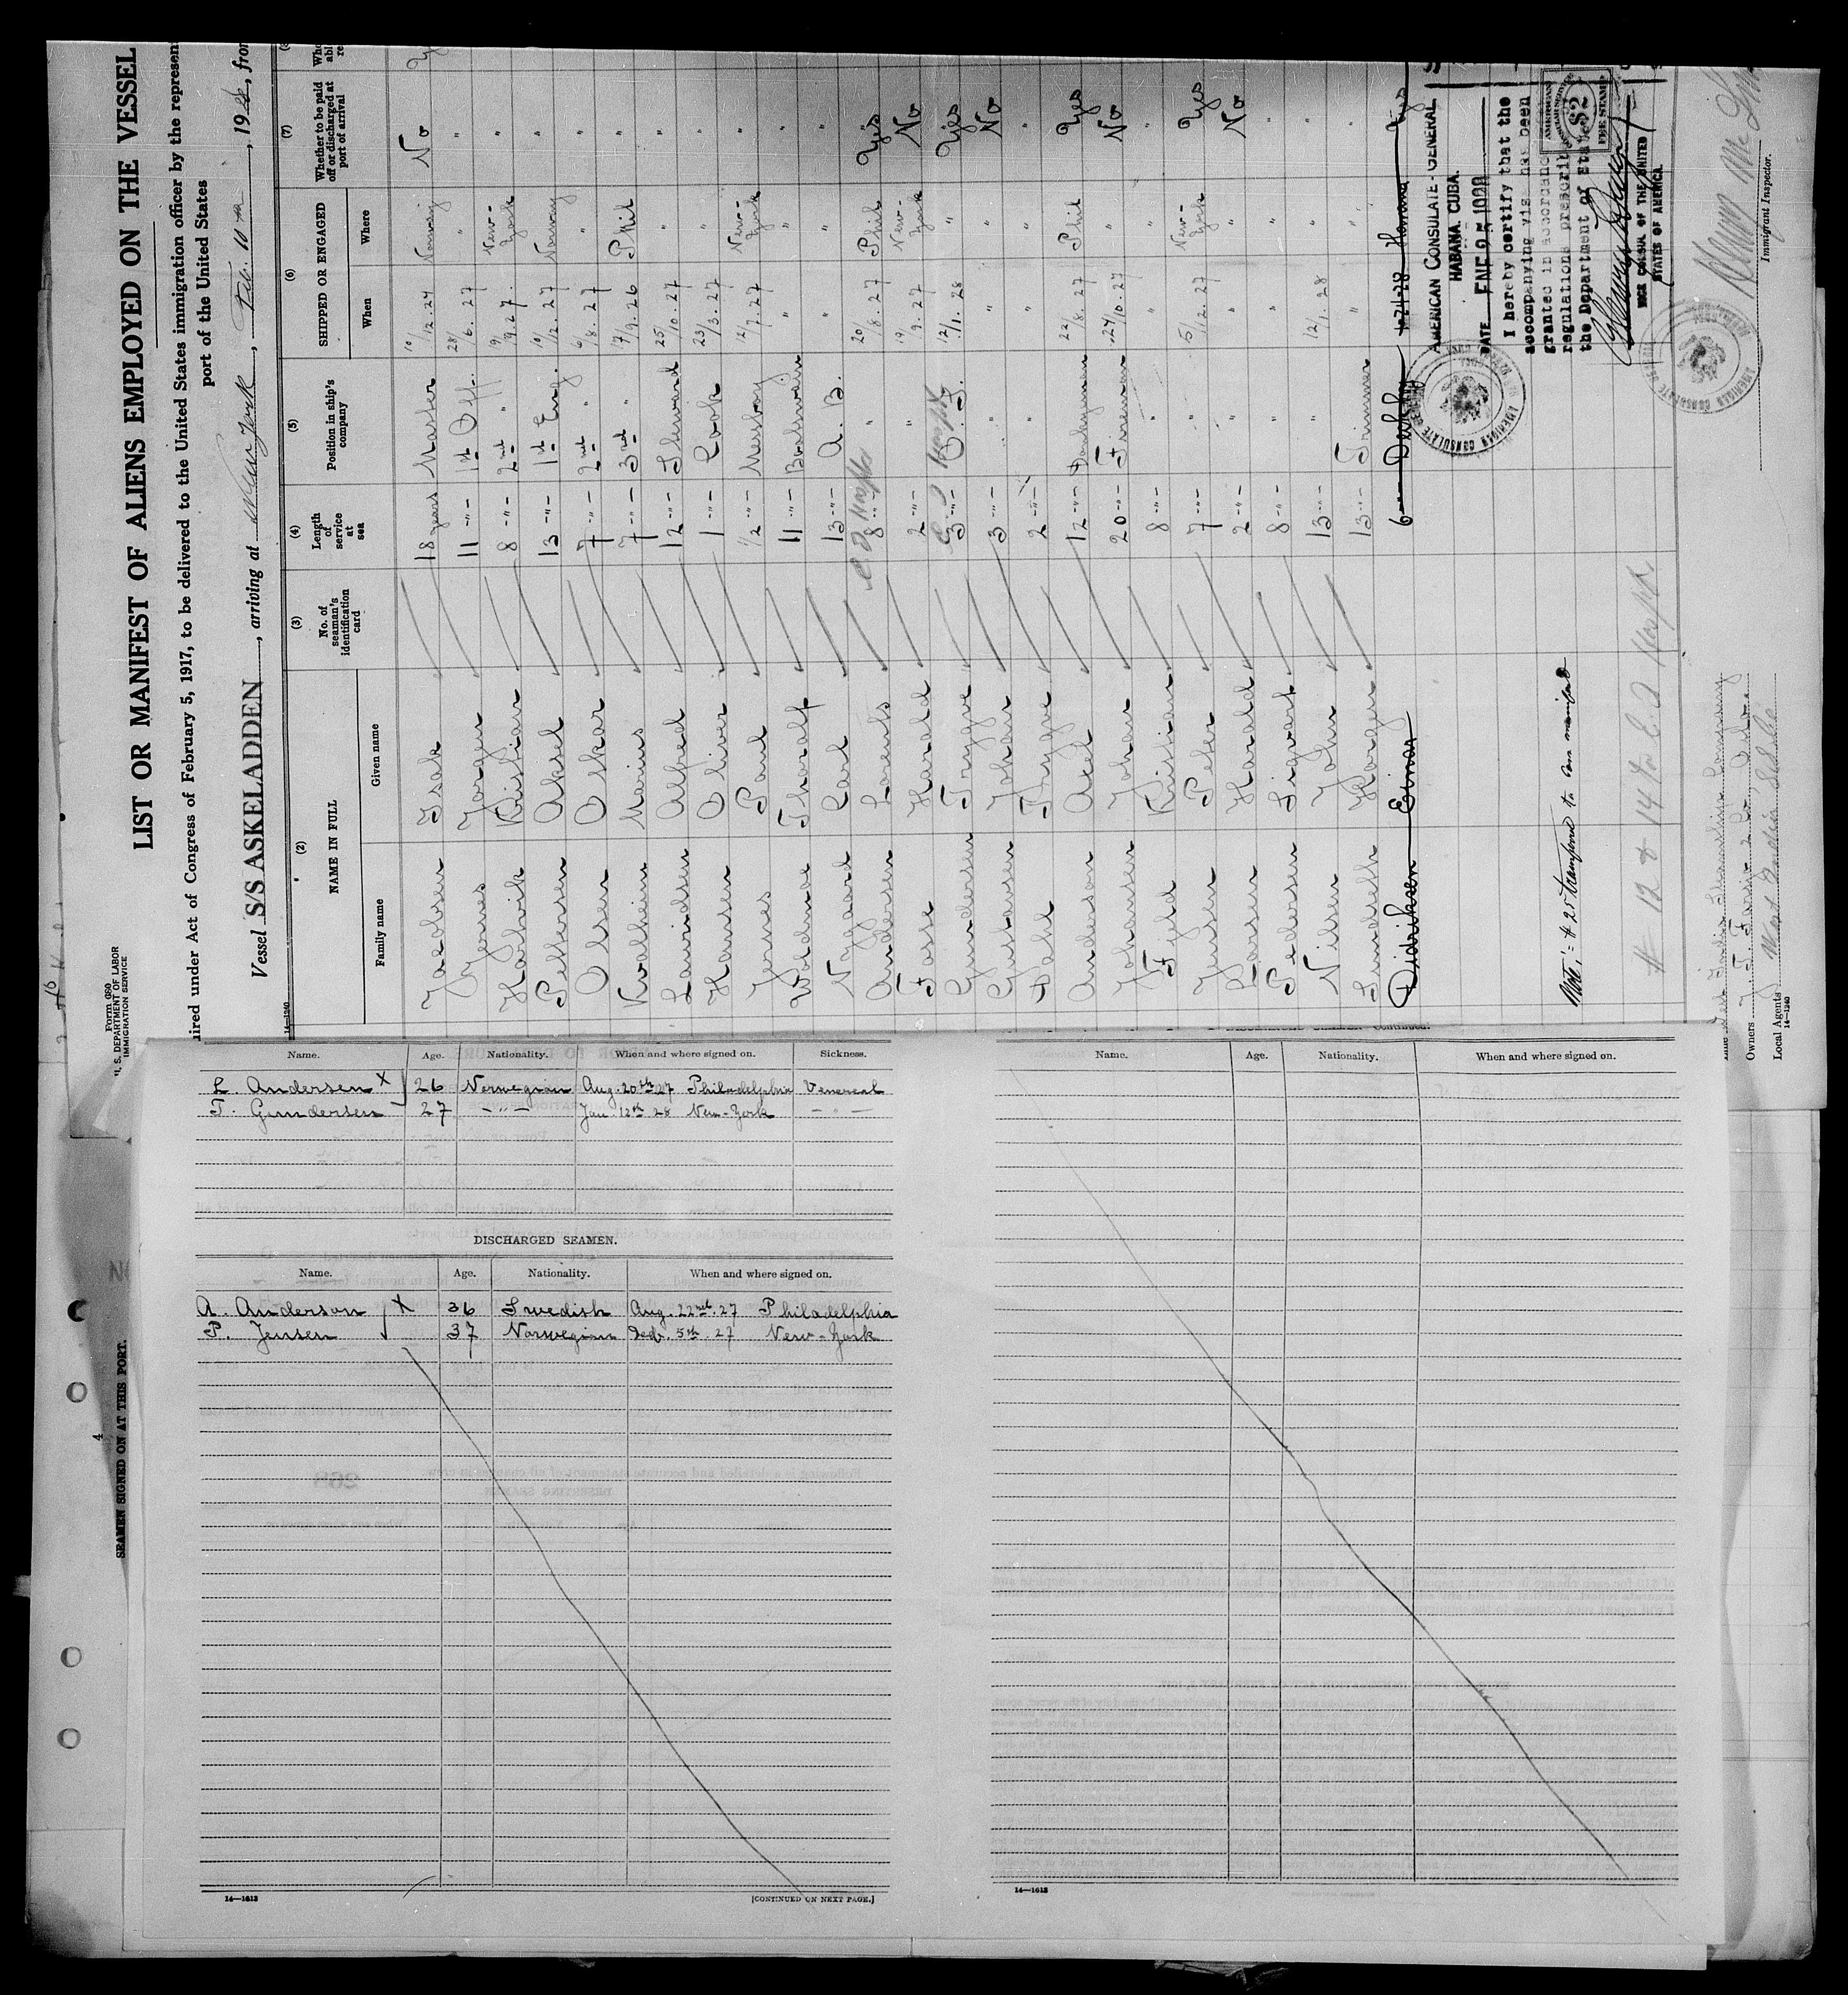 Form 680
U. S. DEPARTMENT OF LABOR
IMMIGRATION SERVICE
LIST OR MANIFEST OF ALIENS EMPLOYED ON THE VESSEL
uired under Act of Congress of February 5, 1917, to be delivered to the United States immigration officer by the represen
port of the United States
Vessel S/S ASKELADDEN, arriving at New York, , 19 , from
14—1240
(2) (3) (4) (5) (6) (7)
NAME IN FULL No. of seaman's identification card Length of service at sea Position in ship's company SHIPPED OR ENGAGED Whether to be paid off or discharged at port of arrival
Family name Given name When Where
Jacobsen Isak 18 years Master 10/12.24 Norway No
Jörgen 11 -"- 1st Off. 28/6.27 " "
Kristian 8 -"- 2nd " 19/9.27 New-York "
Pettersen Aksel 13 -"- 1st Eng. 10/12.27 Norway "
Olsen Oskar 7 -"- 2nd " 6/8.27 " "
Kvalheim Marius 7 -"- 3rd " 17/9.26 Phil "
Lauridsen Alfred 12 -"- Steward 25/10.27 " "
Hansen Oliver 1 -"- Cook 23/3.27 " "
Jernes Paul 1/2 -"- Messboy 12/7.27 New-York "
Tharalf 11 -"- Boatswain " " "
Nyggaard Carl 13 -"- A. B. " " "
Andersen Lorents 8 -"- " 20/8.27 Phil Yes
Fosse Harald 2 -"- " 19/9.27 New-York No
Gundersen Trygve 3 -"- O. S. 12/1.28 " Yes
Gustavsen Johan 3 -"- " " " No
Dahl Trygve 2 -"- " " " "
Anderson Axel 12 -"- Donkeyman 22/8.27 Phil Yes
Johansen Johan 20 -"- Fireman 24/10.27 " No
Fjeld Kristian 8 -"- " " " "
Jensen Peter 7 -"- " 5/12.27 New-York Yes
Larsen Harald 2 -"- " " " No
Pedersen Sigvart 8 -"- " " " "
Nilsen John 13 -"- " 12/1.28 " "
Lundseth 13 -"- Trimmer " " "
Didriksen Einar 6 -"- Deckboy 1-24-28 Havana Yes
AMERICAN CONSULATE-GENERAL
HABANA, CUBA.
DATE
I hereby certify that the
accompanying visa has been
granted in accordance
regulations prescri
the Department of State
VICE CONSUL OF THE UNITED
STATES OF AMERICA.
AMERICAN
$2
FEE STAMP
Note: # 25 transferred to own manifest
# 12 & 14 to Hospt
Owners
Local Agents
14—1240
Immigrant Inspector.
4
SEAMEN SIGNED ON AT THIS PORT.
Name. Age. Nationality. When and where signed on. Sickness.
L. Andersen X 26 Norwegian Aug. 20th 27 Philadelphia Venereal
T. Gundersen 27 -"- Jan 12th 28 New-York -"-
DISCHARGED SEAMEN.
Name. Age. Nationality. When and where signed on.
A. Anderson X 36 Swedish Aug. 22nd. 27 Philadelphia
P. Jensen 37 Norwegian Dec. 5th. 27 New-York
14—1613 [CONTINUED ON NEXT PAGE.]
Name. Age. Nationality. When and where signed on.
14—1613